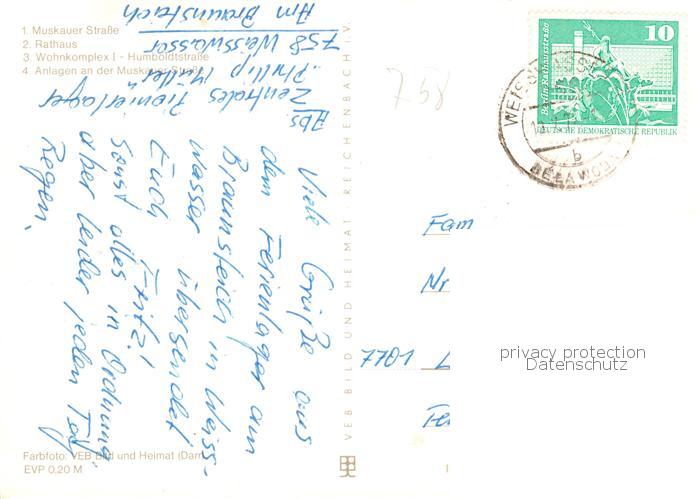 1. Muskauer Straße
2. Rathaus
3. Wohnkomplex I - Humboldtstraße
4. Anlagen an der Muskauer Straße
Abs. Zentrales Pionierlager
"Phillip Müller"
758 Weisswasser
Am Braunsteich
Viele Grüße aus
dem Ferienlager am
Braunsteich in Weiss-
wasser übersendet
Euch Fritz!
Sonst alles in Ordnung
aber leider jeden Tag
Regen.
Farbfoto: VEB Bild und Heimat (Dam
EVP 0,20 M
VEB BILD UND HEIMAT REICHENBACH I. V.
758
10
Berlin, Rathausstraße
DEUTSCHE DEMOKRATISCHE REPUBLIK
b
Fam
Nr
7701
privacy protection
Datenschutz